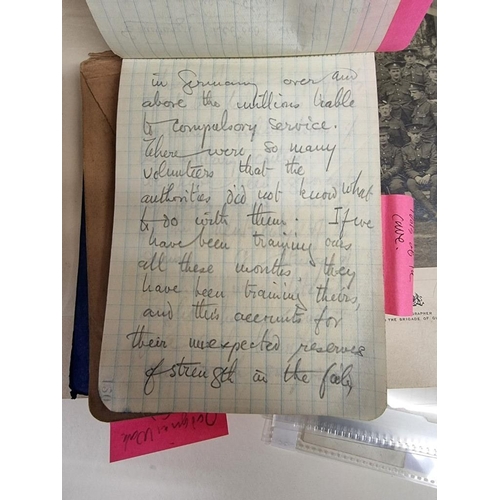 in Germany over and
above the millions liable
to compulsory service.
There were so many
volunteers that the
authorities did not know what
to do with them. If we
have been training ours
all these months, they
have been training theirs,
and this accounts for
their unexpected reserves
of strength in the
cure.
OGRAPHER
THE BRIGADE OF